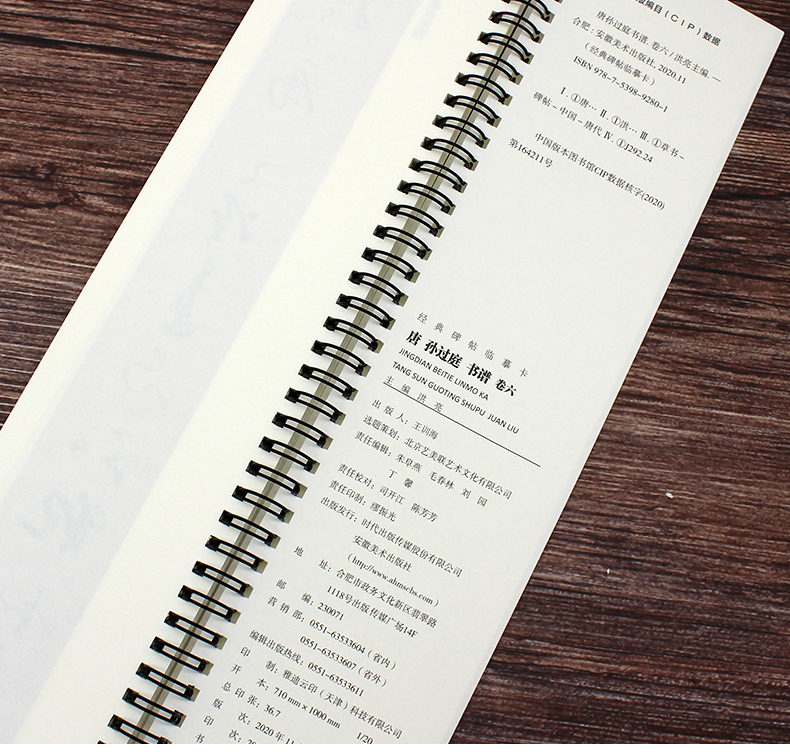 版编目（CIP）数据
唐孙过庭书谱. 卷六/洪亮主编. —
合肥：安徽美术出版社, 2020.11
（经典碑帖临摹卡）
ISBN 978-7-5398-9280-1
Ⅰ. ①唐… Ⅱ. ①洪… Ⅲ. ①草书－
碑帖－中国－唐代 Ⅳ. ①J292.24
中国版本图书馆CIP数据核字(2020)
第164211号
经典碑帖临摹卡
唐 孙过庭 书谱 卷六
JINGDIAN BEITIE LINMO KA
TANG SUN GUOTING SHUPU JUAN LIU
主编 洪亮
出 版 人：王训海
选题策划：北京艺美联艺术文化有限公司
责任编辑：朱阜燕 毛春林 刘 园
丁 馨
责任校对：司开江 陈芳芳
责任印制：缪振光
出版发行：时代出版传媒股份有限公司
安徽美术出版社
（http://www.ahmscbs.com）
地 址：合肥市政务文化新区翡翠路
1118号出版传媒广场14F
邮 编：230071
营 销 部：0551-63533604（省内）
0551-63533607（省外）
编辑出版热线：0551-63533611
印 制：雅迪云印（天津）科技有限公司
开 本：710 mm×1000 mm 1/20
总 印 张：36.7
版 次：2020年11
印 次：
书